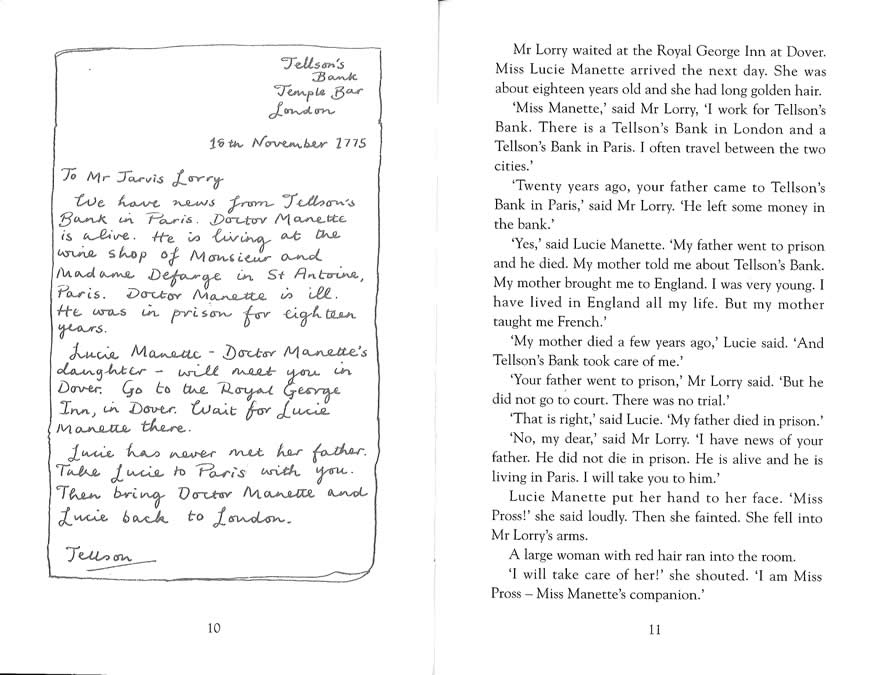 Tellson's
Bank
Temple Bar
London
18th November 1775
To Mr Jarvis Lorry
We have news from Tellson's
Bank in Paris. Doctor Manette
is alive. He is living at the
wine shop of Monsieur and
Madame Defarge in St Antoine,
Paris. Doctor Manette is ill.
He was in prison for eighteen
years.
Lucie Manette - Doctor Manette's
daughter - will meet you in
Dover. Go to the Royal George
Inn, in Dover. Wait for Lucie
Manette there.
Lucie has never met her father.
Take Lucie to Paris with you.
Then bring Doctor Manette and
Lucie back to London.
Tellson
10
Mr Lorry waited at the Royal George Inn at Dover.
Miss Lucie Manette arrived the next day. She was
about eighteen years old and she had long golden hair.
‘Miss Manette,’ said Mr Lorry, ‘I work for Tellson’s
Bank. There is a Tellson’s Bank in London and a
Tellson’s Bank in Paris. I often travel between the two
cities.’
‘Twenty years ago, your father came to Tellson’s
Bank in Paris,’ said Mr Lorry. ‘He left some money in
the bank.’
‘Yes,’ said Lucie Manette. ‘My father went to prison
and he died. My mother told me about Tellson’s Bank.
My mother brought me to England. I was very young. I
have lived in England all my life. But my mother
taught me French.’
‘My mother died a few years ago,’ Lucie said. ‘And
Tellson’s Bank took care of me.’
‘Your father went to prison,’ Mr Lorry said. ‘But he
did not go to court. There was no trial.’
‘That is right,’ said Lucie. ‘My father died in prison.’
‘No, my dear,’ said Mr Lorry. ‘I have news of your
father. He did not die in prison. He is alive and he is
living in Paris. I will take you to him.’
Lucie Manette put her hand to her face. ‘Miss
Pross!’ she said loudly. Then she fainted. She fell into
Mr Lorry’s arms.
A large woman with red hair ran into the room.
‘I will take care of her!’ she shouted. ‘I am Miss
Pross – Miss Manette’s companion.’
11